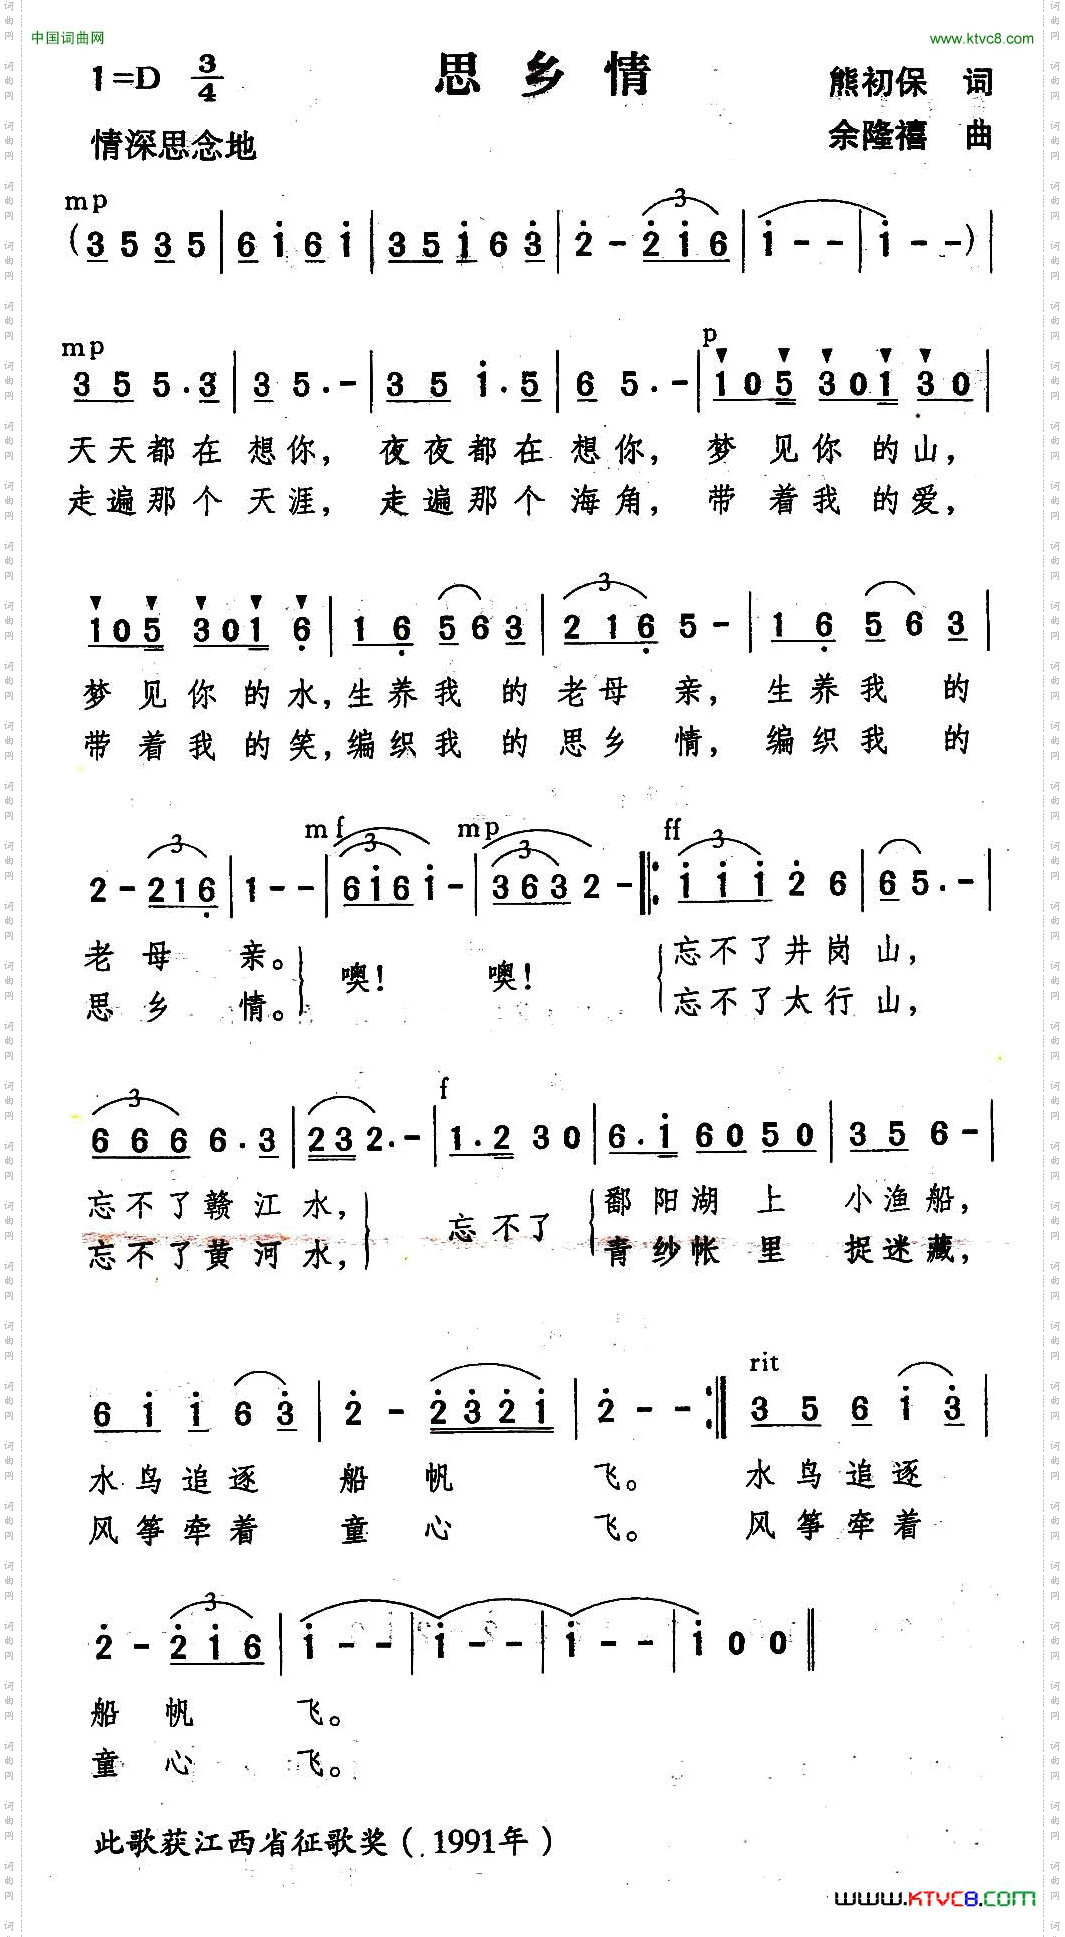 中国词曲网
www.ktvc8.com
1=D 3/4
思乡情
熊初保 词
情深思念地
余隆禧 曲
mp
3
(3 5 3 5 | 6 i 6 i | 3 5 i 6 3 | 2 - 2 i 6 | i - - | i - -) |
mp p
3 5 5 . 3 | 3 5 . - | 3 5 i . 5 | 6 5 . - | 1 0 5 3 0 1 3 0 |
天天都在想你，夜夜都在想你，梦见你的山，
走遍那个天涯，走遍那个海角，带着我的爱，
3
1 0 5 3 0 1 6 | 1 6 5 6 3 | 2 1 6 5 - | 1 6 5 6 3 |
梦见你的水，生养我的老母亲，生养我的
带着我的笑，编织我的思乡情，编织我的
3 mf 3 mp 3 ff 3
2 - 2 1 6 | 1 - - | 6 i 6 i - | 3 6 3 2 - |: i i i 2 6 | 6 5 . - |
老母亲。噢！噢！忘不了井岗山，
思乡情。忘不了太行山，
3 f
6 6 6 6 . 3 | 2 3 2 . - | 1 . 2 3 0 | 6 . i 6 0 5 0 | 3 5 6 - |
忘不了赣江水，忘不了鄱阳湖上小渔船，
忘不了黄河水，青纱帐里捉迷藏，
rit
6 i i 6 3 | 2 - 2 3 2 i | 2 - - :| 3 5 6 i 3 |
水鸟追逐船帆飞。水鸟追逐
风筝牵着童心飞。风筝牵着
3
2 - 2 i 6 | i - - | i - - | i - - | i 0 0 ||
船帆飞。
童心飞。
此歌获江西省征歌奖（1991年）
www.KTVC8.COM
词曲网